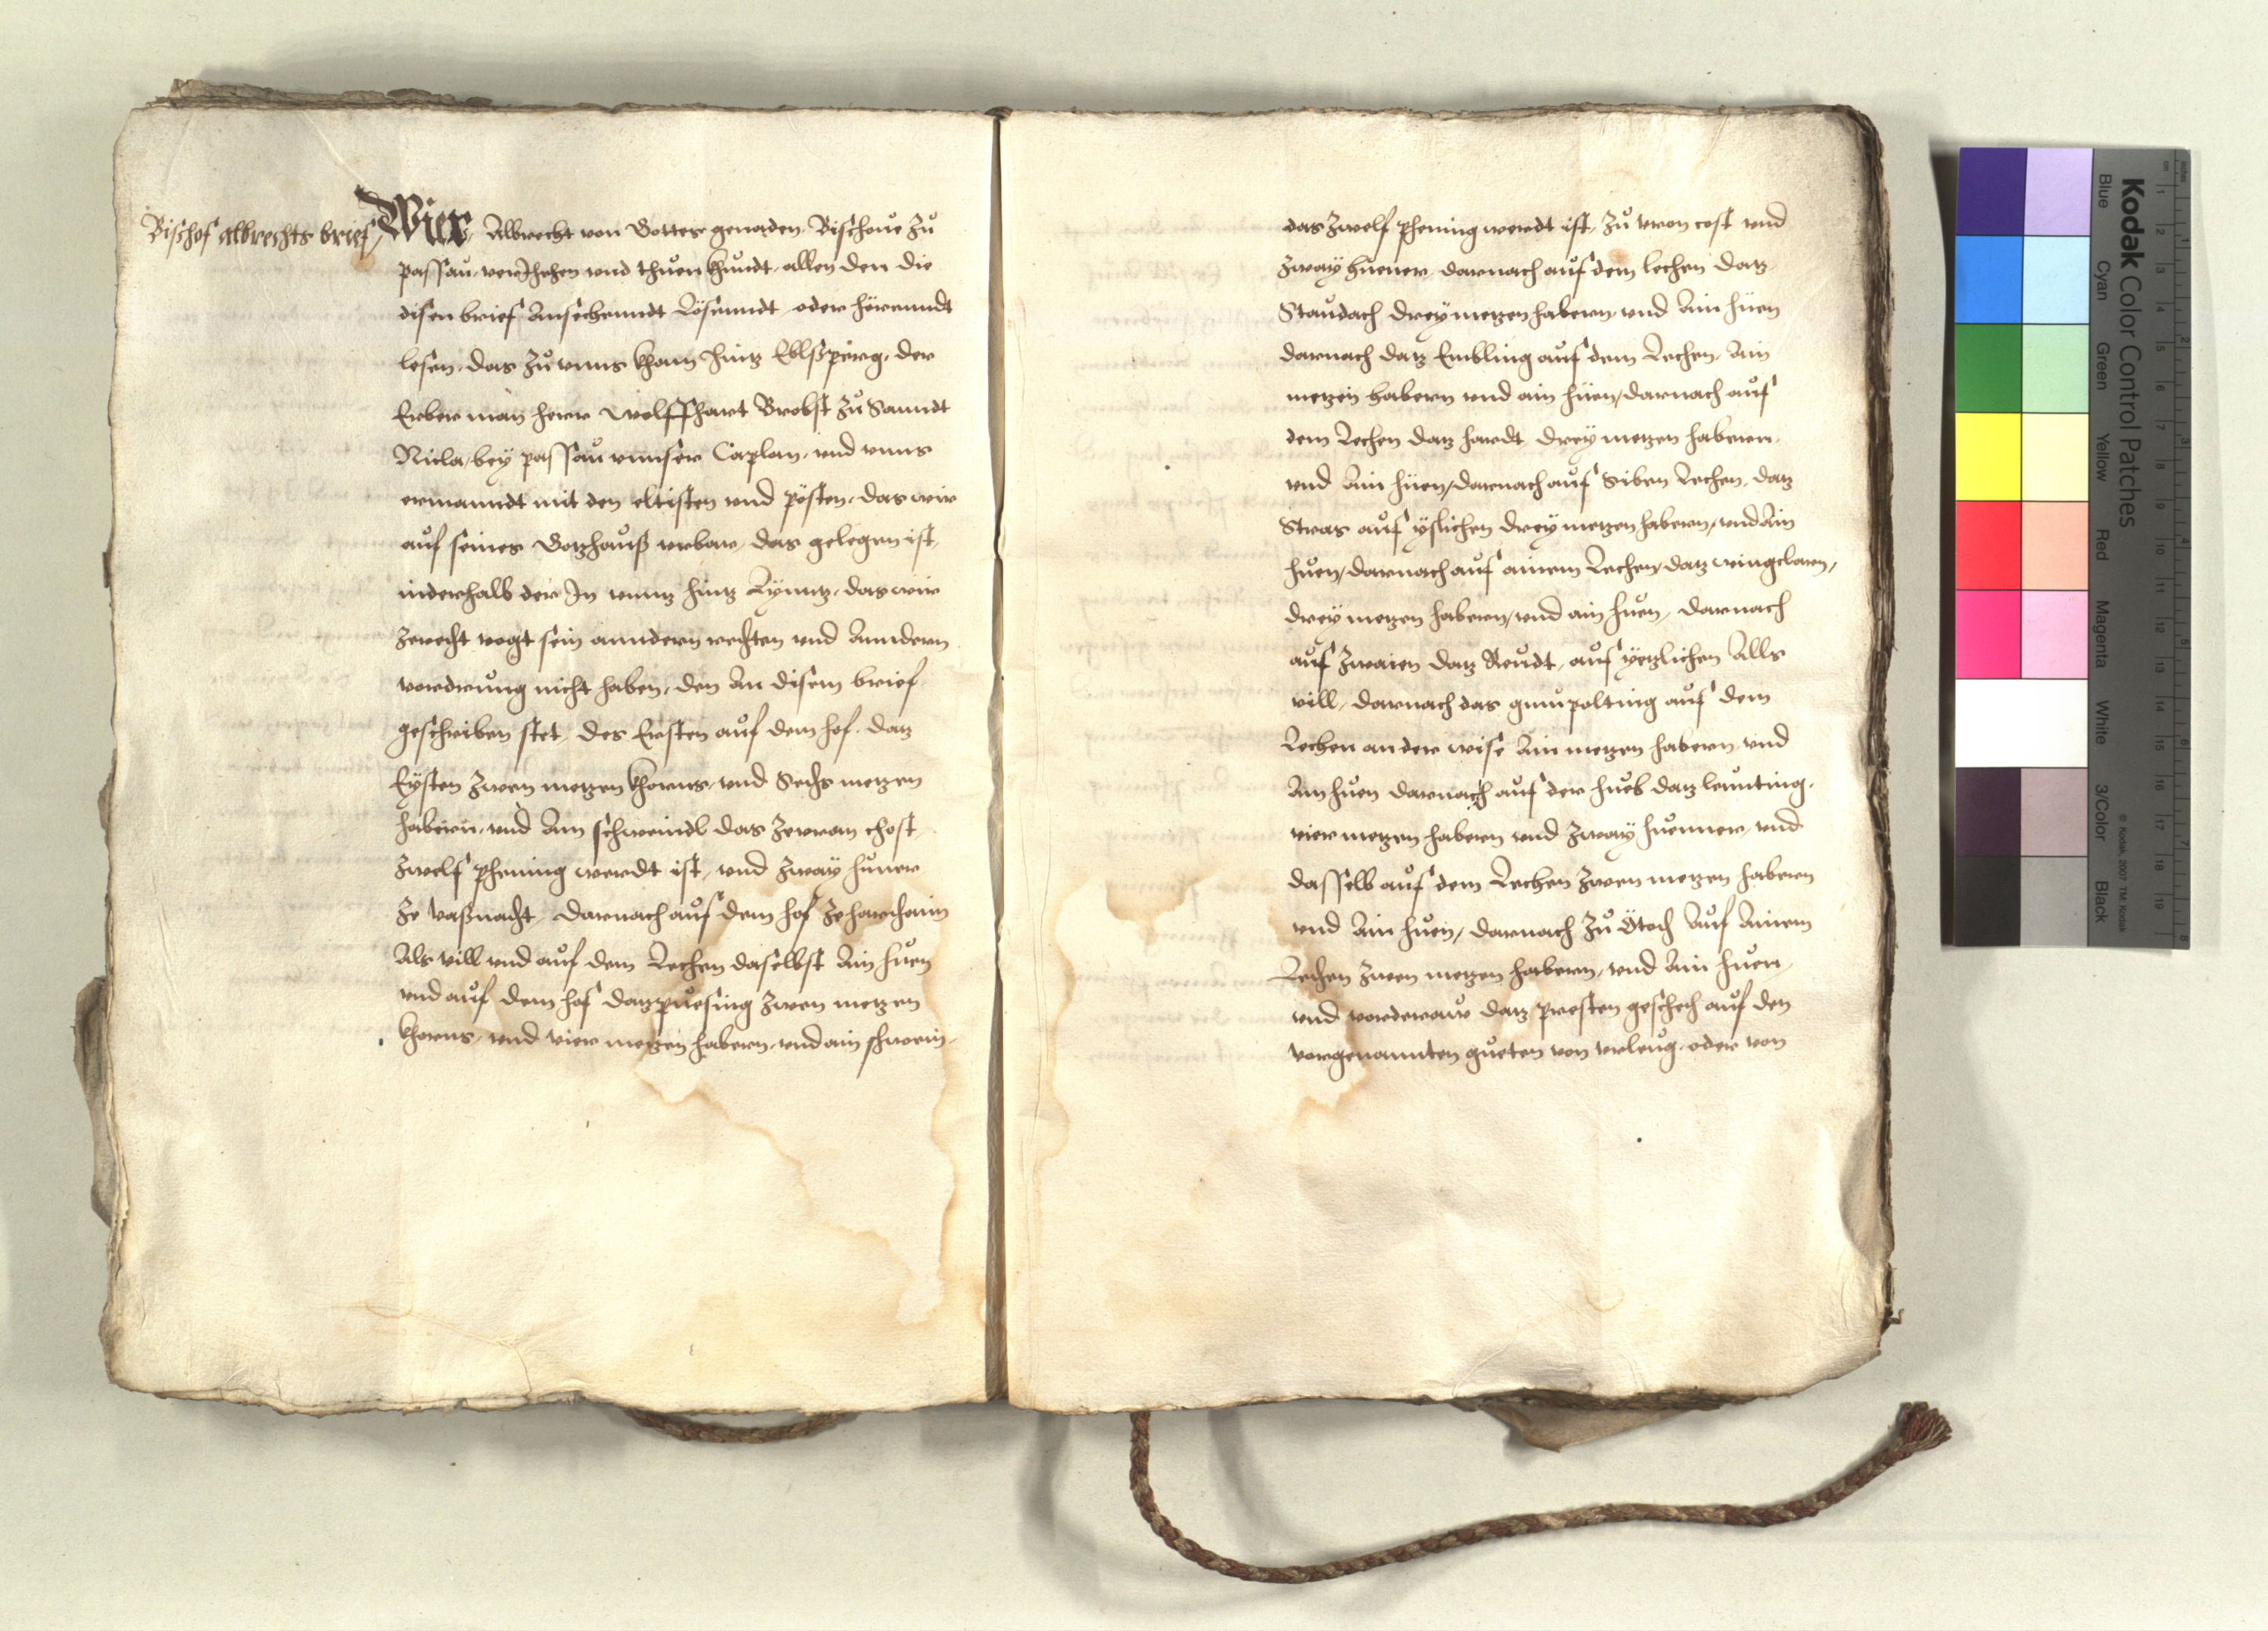 Bischof albrechts brief
Wier, Albrecht von Gottes genaden, Bischoue Zů
passau, verIhehen vnd thuen khundt, allen den die
disen brief Ansechenndt Lösenndt oder hörenndt
lesen, das Zů vnns kham hintz Eblsperg, der
Erber man herr Wolffhart Brobst Zů Sanndt
Nicla, bey passau vnnser Caplan, vnd vnns
ermanndt mit den eltisten vnd pösten, das wir
auf seines Gotzhauß vrbar, das gelegen ist,
inderhalb der In vnntz hintz Lynntz, das wir
Zerecht vogt sein anndern rechten vnd Anndern
vordrung nicht haben, den An disem brief
geschriben stet, des Ersten auf dem hof, datz
Eysten Zwen metzen khorns, vnd Sechs metzen
habern, vnd Ain schweindl das Zewran chost
Zwelf phening werdt ist, vnd Zway huner
Ze Vaßnacht, darnach auf dem hof Ze
Als vill vnd auf dem Lechen daselbst Ain huen
vnd auf dem hof datz puesing Zwen metzen
khorns, vnd vier metzen habern, vnd ain schwein,
das Zwelf phening werdt ist, Zů vron cost vnd
Zway huener, darnach auf dem lechen datz
Staudach drey metzen habern, vnd Ain huen
darnach datz Embling auf dem Lechen, Ain
metzen habern vnd ain huen, darnach auf
dem Lechen datz hardt drey metzen habern,
vnd Ain huen, darnach auf Siben Lechen, datz
Stras auf yslichen drey metzen habern, vnd Ain
huen, darnach auf ainem Lechen, datz
drey metzen habern, vnd ain huen, darnach
auf Zwaien datz Reudt, auf yetzlichen Alls
vill, darnach das gumpolting auf dem
Lechen an der wise Ain metzen habern, vnd
Ain huen darnach auf der hueb datz leunting,
vier metzen habern vnd Zway huenner, vnd
dasselb auf dem Lechen Zwen metzen habern
vnd Ain huen, darnach Zů Auf Ainem
Lechen Zwen metzen habern, vnd Ain huen,
vnd datz presten geschech auf den
vorgenannten gueten von vrleug, oder von
Kodak Color Control Patches
Blue Cyan Green Yellow Red Magenta White 3/Color Black
© Kodak, 2007 TM: Kodak